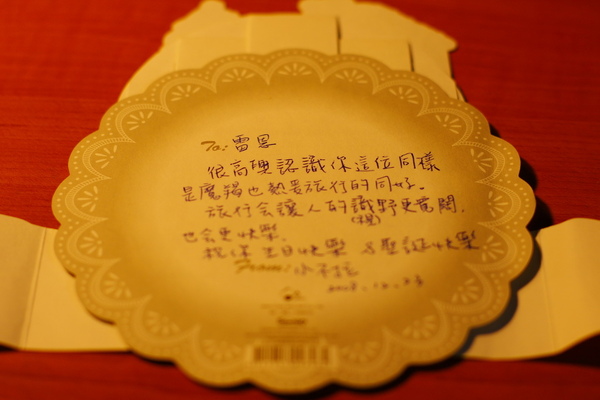 To: 雷恩
很高興認識你這位同樣
是魔羯也熱愛旅行的同好。
旅行會讓人的識野更寬闊,
(視)
也會更快樂.
祝你 生日快樂 & 聖誕快樂
From: 小不拉
2008.12.23